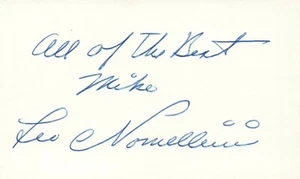 All of The Best
Mike
Leo Nomellini